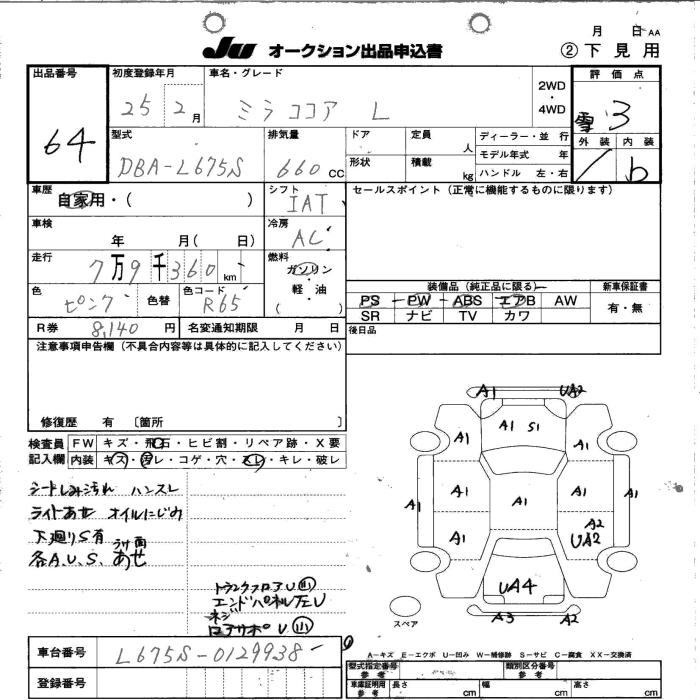 月 日 AA
JU オークション出品申込書 ②下見用
出品番号 64
初度登録年月 25 2月
車名・グレード ミラココア L
2WD・4WD
評価点 雪 3
外装 / 内装 b
型式 DBA-L675S
排気量 660 CC
ドア 形状
定員 人 積載 kg
ディーラー・並行
モデル年式 年
ハンドル 左・右
車歴 自家用・( )
シフト IAT
セールスポイント(正常に機能するものに限ります)
車検 年 月( 日)
冷房 AC
走行 7万9千360km
燃料 ガソリン・軽・油 ( )
色 ピンク 色替 色コード R65
装備品(純正品に限る) 新車保証書
PS PW ABS エアB AW 有・無
SR ナビ TV カワ
R券 8,140円 名変通知期限 月 日
後日品
注意事項申告欄(不具合内容等は具体的に記入してください)
修復歴 有 〔箇所 〕
検査員 FW キズ・飛石・ヒビ割・リペア跡・X要
記入欄 内装 キズ・汚レ・コゲ・穴・スレ・キレ・破レ
シートしみ汚れ ハンスレ
ライトあせ オイルにじみ
下廻りS有
各A.U.S. あせ
トランクフロアU
エンドパネル左U
ネジ
A1 UA2
A1 S1
A1 A1
A1 A1 A1 A1 A1
A1 A2
UA2
UA4
A3 A2
スペア
車台番号 L675S-0129938
登録番号
A-キズ E-エクボ U-凹み W-補修跡 S-サビ C-腐食 XX-交換済
型式指定番号 参考 類別区分番号 参考
車庫証明用 参考 長さ cm 幅 cm 高さ cm